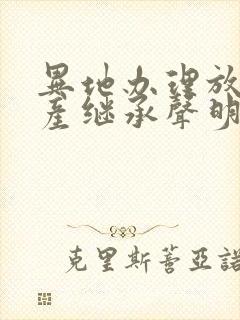 異地办理放
產继承聲明
克里斯蒂亞諾